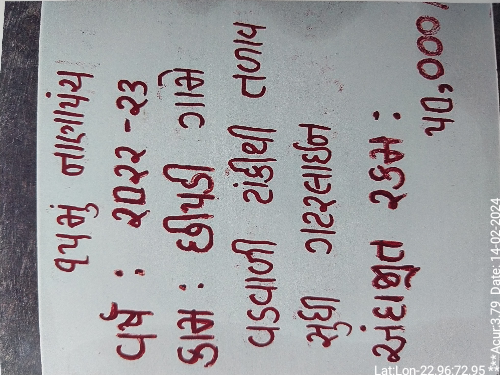 ૧૫મું નાણાપંચ
વર્ષ : ૨૦૨૨-૨૩
કામ : છીપડી ગામે
વડવાળી ટાંકીથી તળાવ
સુધી ગટરલાઈન
અંદાજીત રકમ :
૫૦,૦૦૦/
Lat:Lon-22.96:72.95
***Acur:3.79 Date: 14-02-2024